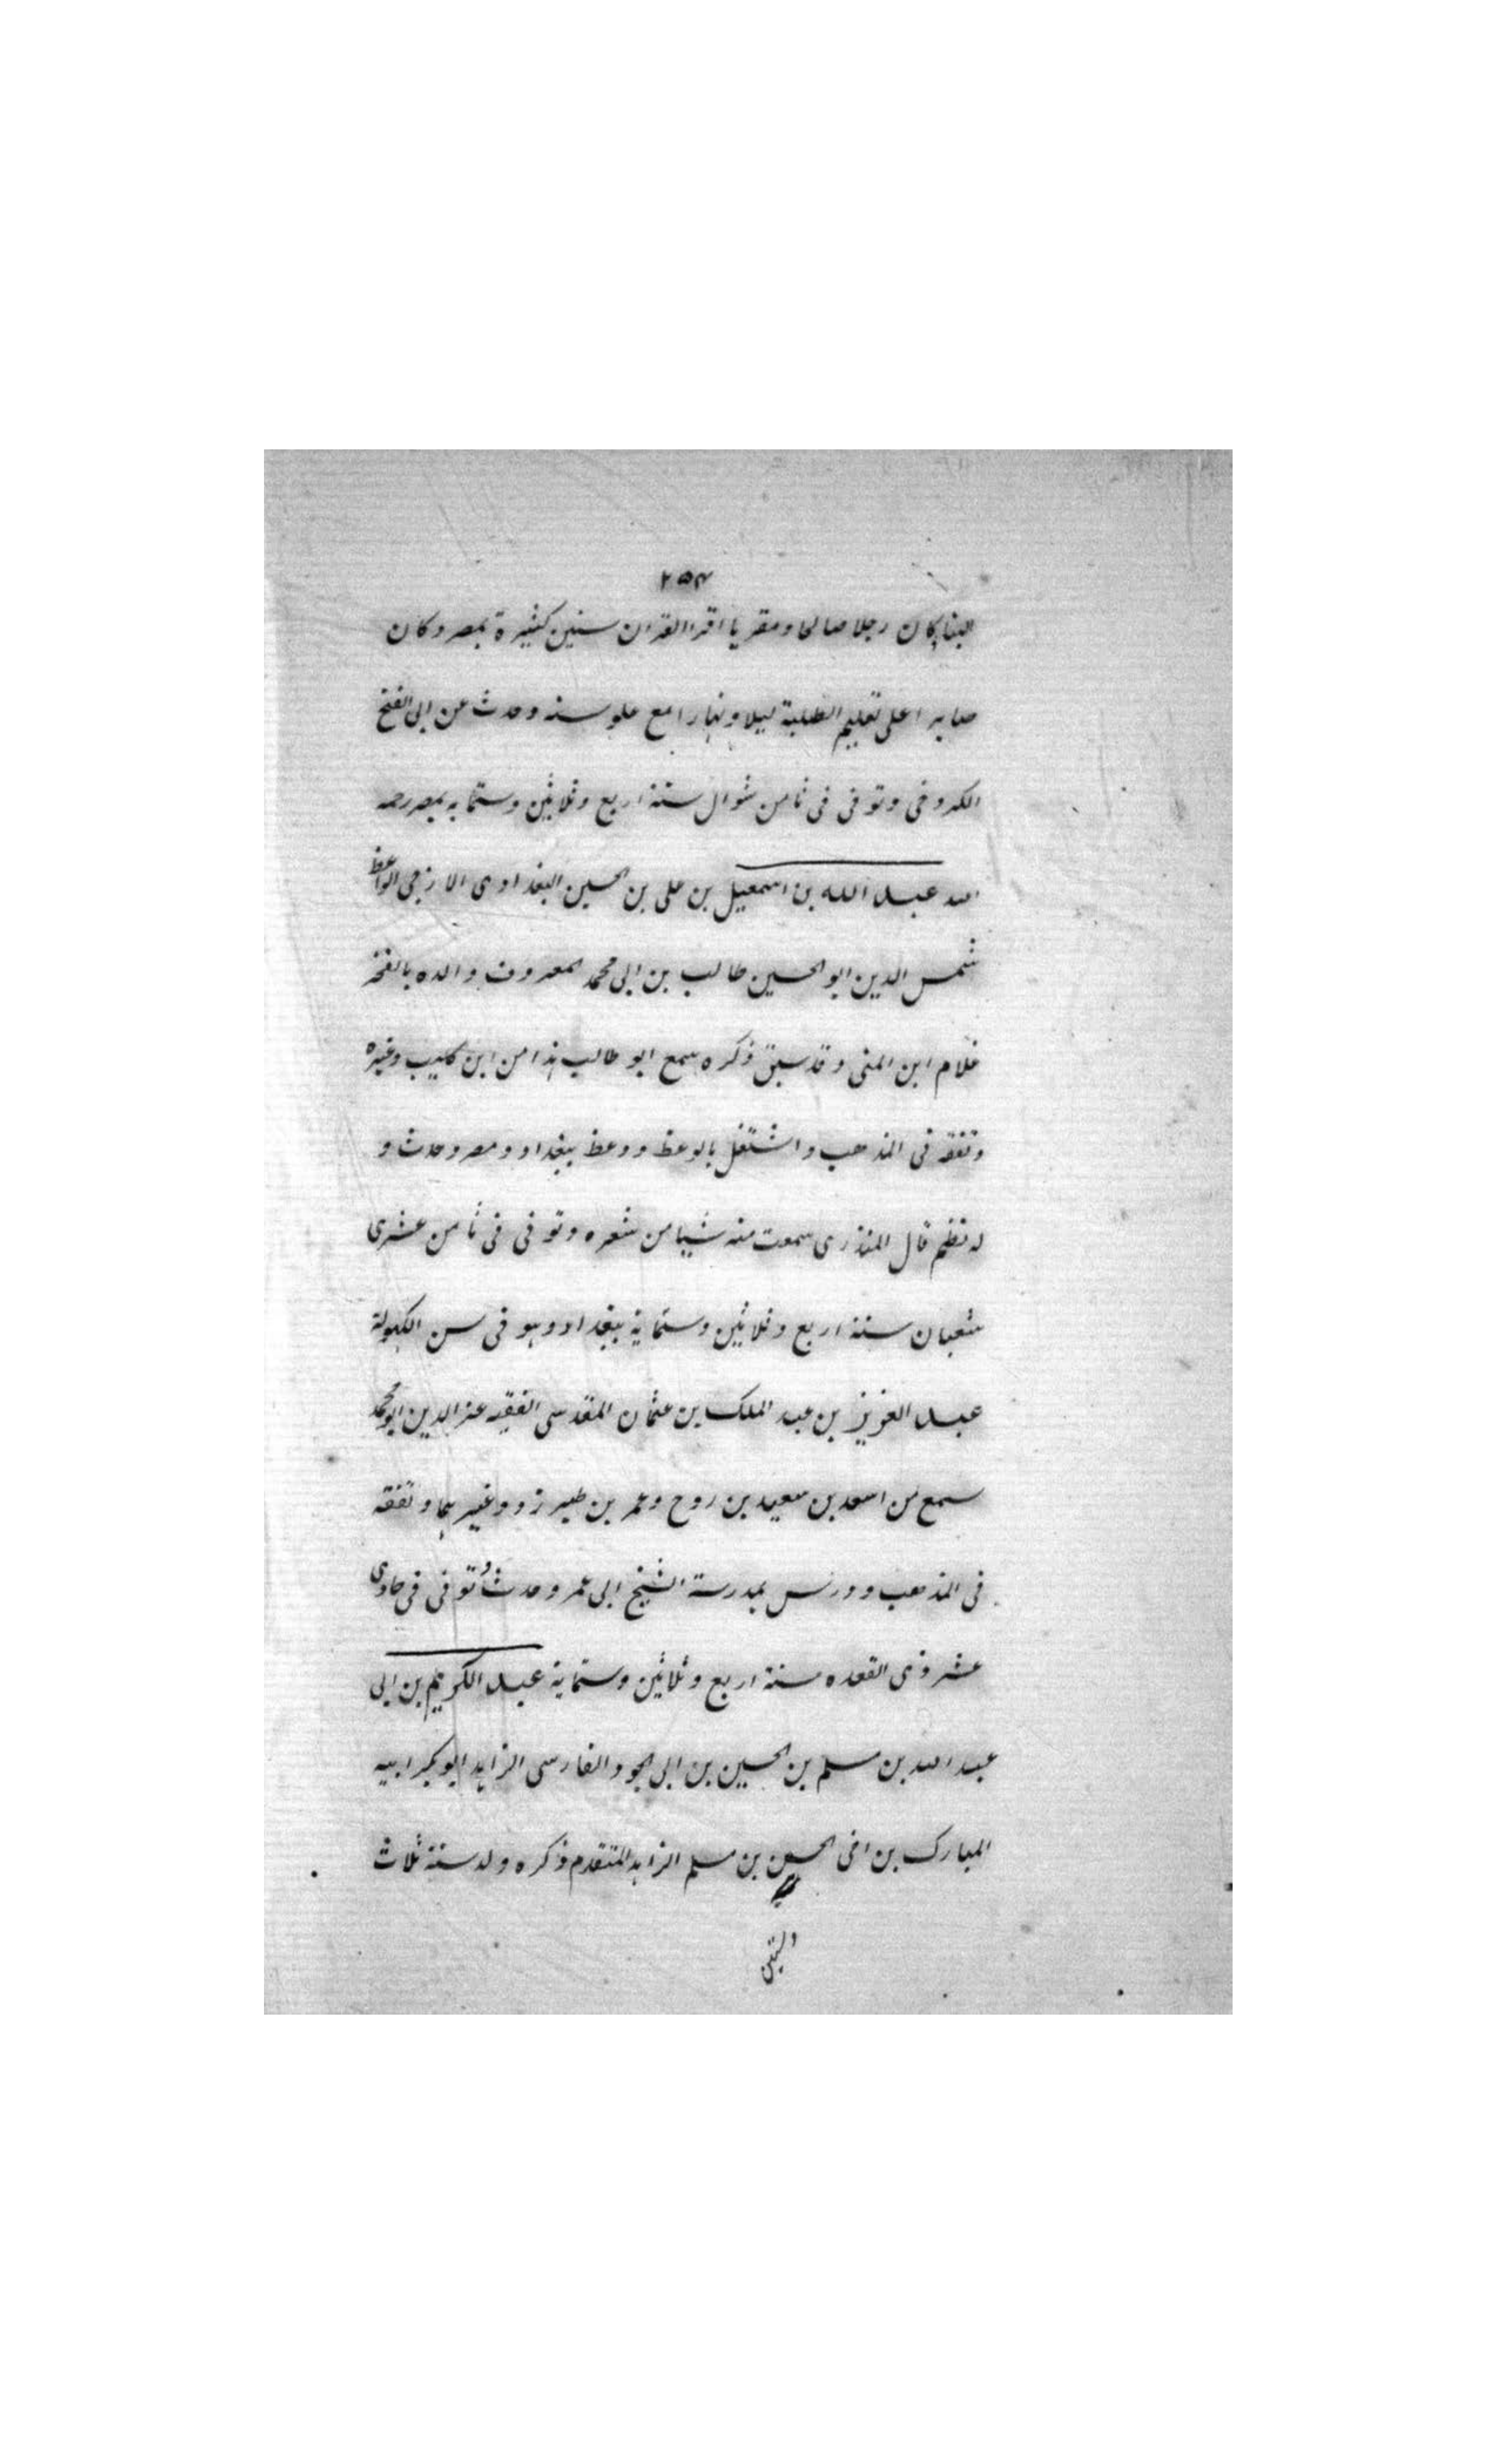 ٢٥٣
البنا كان رجلا صالحا ومقريا اقرا القران سنين كثيرة بمصر وكان
صابرا على تعليم الطلبة ليلا ونهارا مع علو سنه وحدث عن ابى الفتح
الكروخى وتوفى فى ثامن شوال سنة اربع وثلاثين وستمايه بمصر رحمه
الله عبد الله بن اسمعيل بن على بن الحسين البغدادى الازجى الواعظ
شمس الدين ابو الحسين طالب بن ابى محمد المعروف والده بالفخر
غلام ابن المنى وقد سبق ذكره سمع ابو طالب هذا من ابن كليب وغيره
وتفقه فى المذهب واشتغل بالوعظ ووعظ ببغداد ومصر وحدث و
له نظم قال المنذرى سمعت منه شيبا من شعره وتوفى فى ثامن عشرى
شعبان سنة اربع وثلاثين وستماية ببغداد وهو فى سن الكهولة
عبد العزيز بن عبد الملك بن عثمان المقدسى الفقيه عز الدين ابو محمد
سمع من اسعد بن سعيد بن روح وعمر بن طبرزد وغيرهما وتفقه
فى المذهب ودرس بمدرسة الشيخ ابى عمر وحدث وتوفى فى حادى
عشر ذى القعده سنة اربع وثلاثين وستماية عبد الكريم بن ابى
عبد الله بن مسلم بن الحسين بن ابى الجود الفارسى الزاهد ابو بكر ابيه
المبارك بن اخى الحسن بن مسلم الزاهد المتقدم ذكره ولد سنة ثلاث